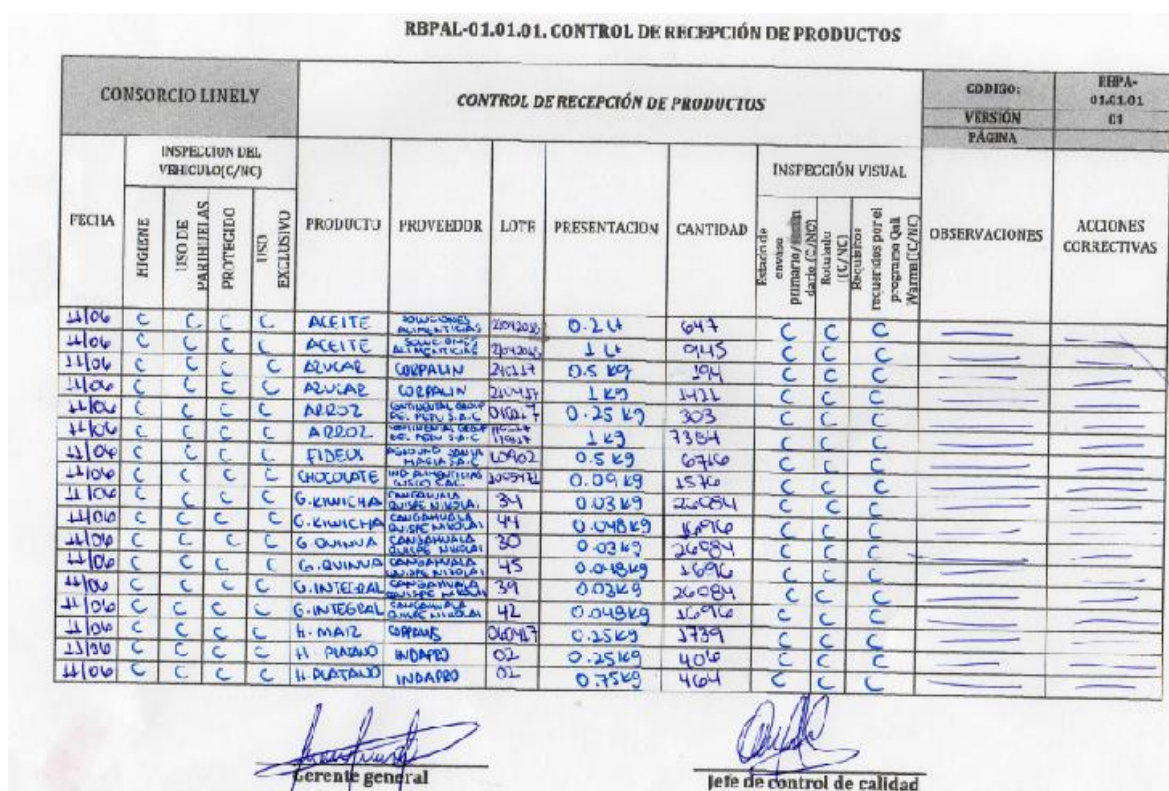 RBPAL-01.01.01. CONTROL DE RECEPCIÓN DE PRODUCTOS
CONSORCIO LINELY
CONTROL DE RECEPCIÓN DE PRODUCTOS
CODIGO: RBPA-01.01.01
VERSIÓN 01
PÁGINA
INSPECCIÓN DEL VEHICULO(C/NC)
INSPECCIÓN VISUAL
FECHA HIGIENE USO DE PARIHUELAS PROTEGIDO USO EXCLUSIVO PRODUCTO PROVEEDOR LOTE PRESENTACION CANTIDAD Estado de envase primario/ dario (C/NC) Rotulado (C/NC) Requisitos por el programa Qali Warma (C/NC) OBSERVACIONES ACCIONES CORRECTIVAS
11/06 C C C C ACEITE SOLUCIONES ALIMENTICIAS 0.2 Lt 647 C C C
11/06 C C C C ACEITE SOLUCIONES ALIMENTICIAS 1 Lt 945 C C C
11/06 C C C C AZUCAR CORPALIN 0.5 kg 194 C C C
11/06 C C C C AZUCAR CORPALIN 1 kg 1421 C C C
11/06 C C C C ARROZ CONTINENTAL GROUP DEL PERU S.A.C 0.25 kg 303 C C C
11/06 C C C C ARROZ CONTINENTAL GROUP DEL PERU S.A.C 1 kg 7384 C C C
11/06 C C C C FIDEUS L0902 0.5 kg C C C
11/06 C C C C CHOCOLATE 0.09 kg 1576 C C C
11/06 C C C C G.KIWICHA CANGAHUALA QUISPE NIKOLAI 34 0.03 kg 26084 C C C
11/06 C C C C G.KIWICHA CANGAHUALA QUISPE NIKOLAI 44 0.048 kg 1696 C C C
11/06 C C C C G.QUINUA CANGAHUALA QUISPE NIKOLAI 30 0.03 kg 26084 C C C
11/06 C C C C G.QUINUA CANGAHUALA QUISPE NIKOLAI 45 0.048 kg 1696 C C C
11/06 C C C C G.INTEGRAL CANGAHUALA QUISPE NIKOLAI 39 0.03 kg 26084 C C C
11/06 C C C C G.INTEGRAL CANGAHUALA QUISPE NIKOLAI 42 0.048 kg 1696 C C C
11/06 C C C C H. MAIZ 060417 0.25 kg 1739 C C C
11/06 C C C C H. PLATANO INDAPRO 02 0.25 kg 406 C C C
11/06 C C C C H. PLATANO INDAPRO 02 0.75 kg 464 C C C
Gerente general
Jefe de control de calidad